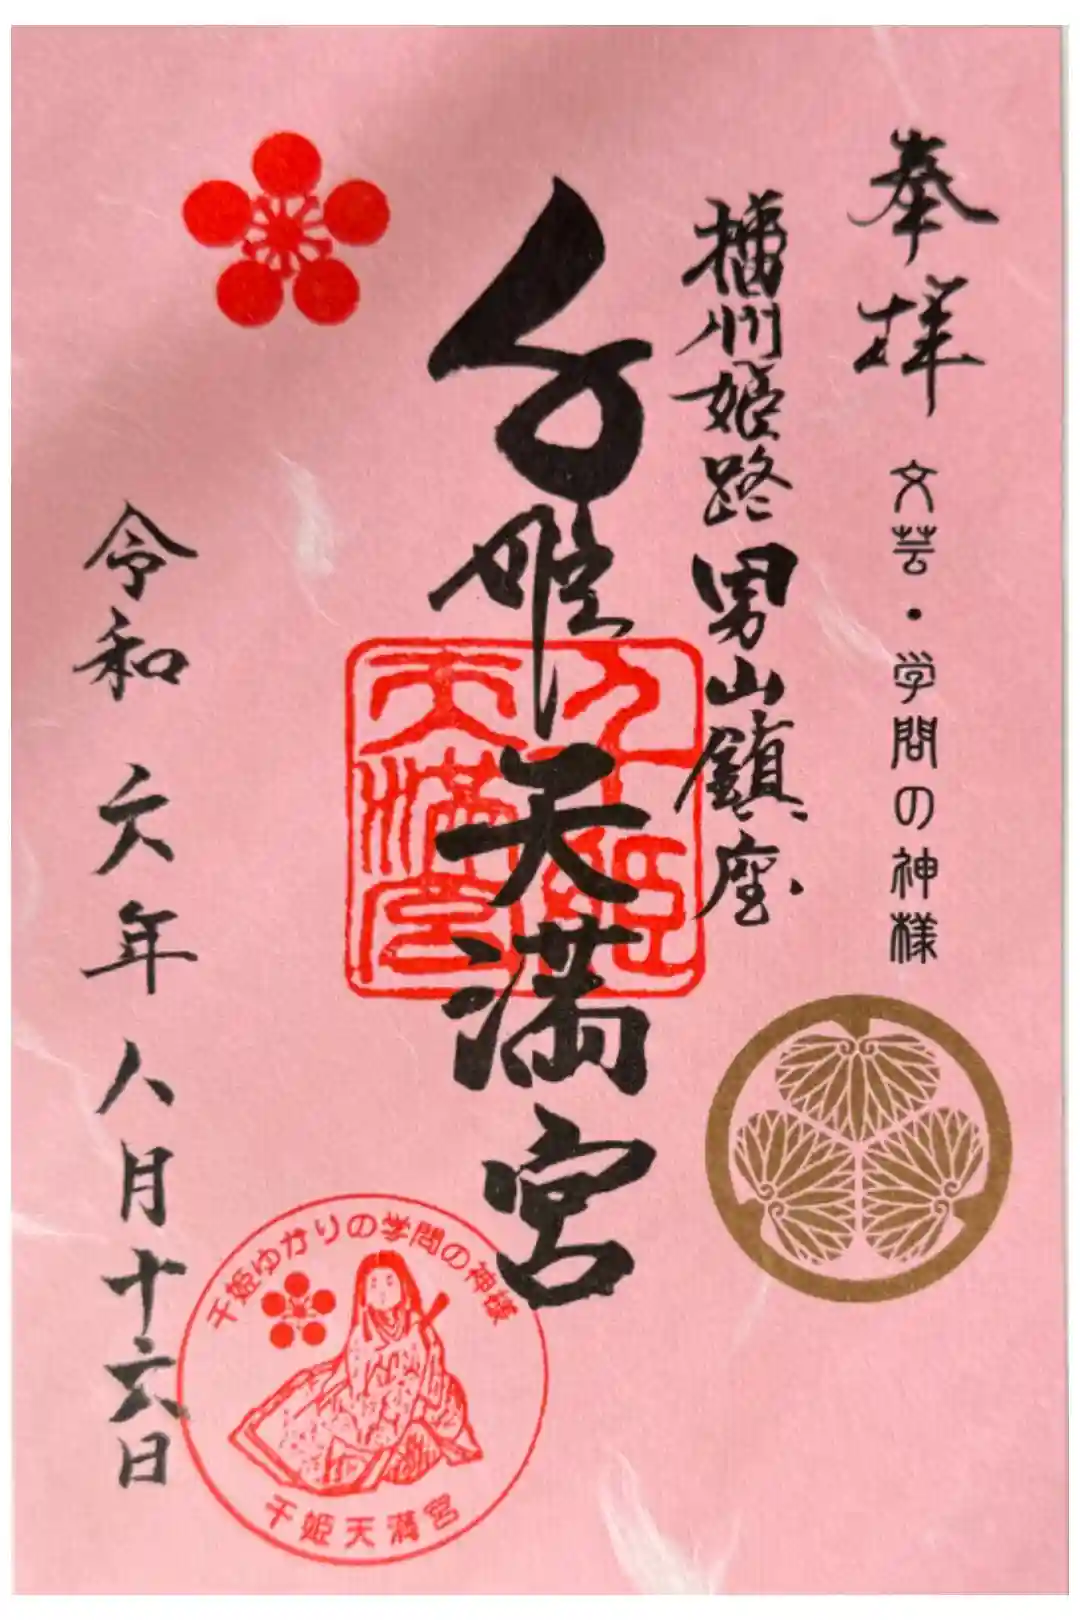 奉拝
文芸・学問の神様
播州姫路男山鎮座
千姫天満宮
千姫天満宮
令和六年八月十六日
千姫ゆかりの学問の神様
千姫天満宮